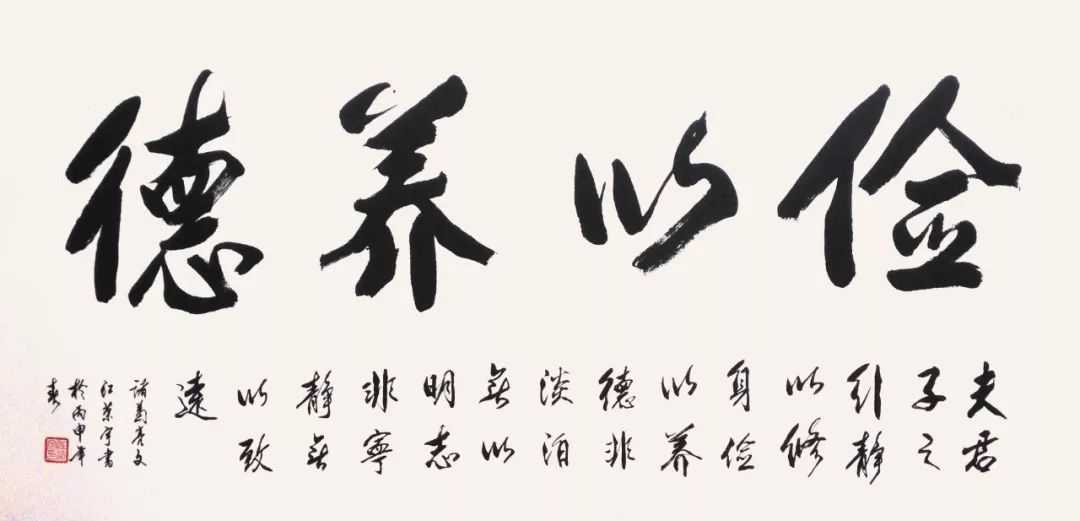 俭以养德
夫君
子之
行静
以修
身俭
以养
德非
淡泊
無以
明志
非寧
静無
以致
遠
诸葛亮文
宇書
於丙申年
春